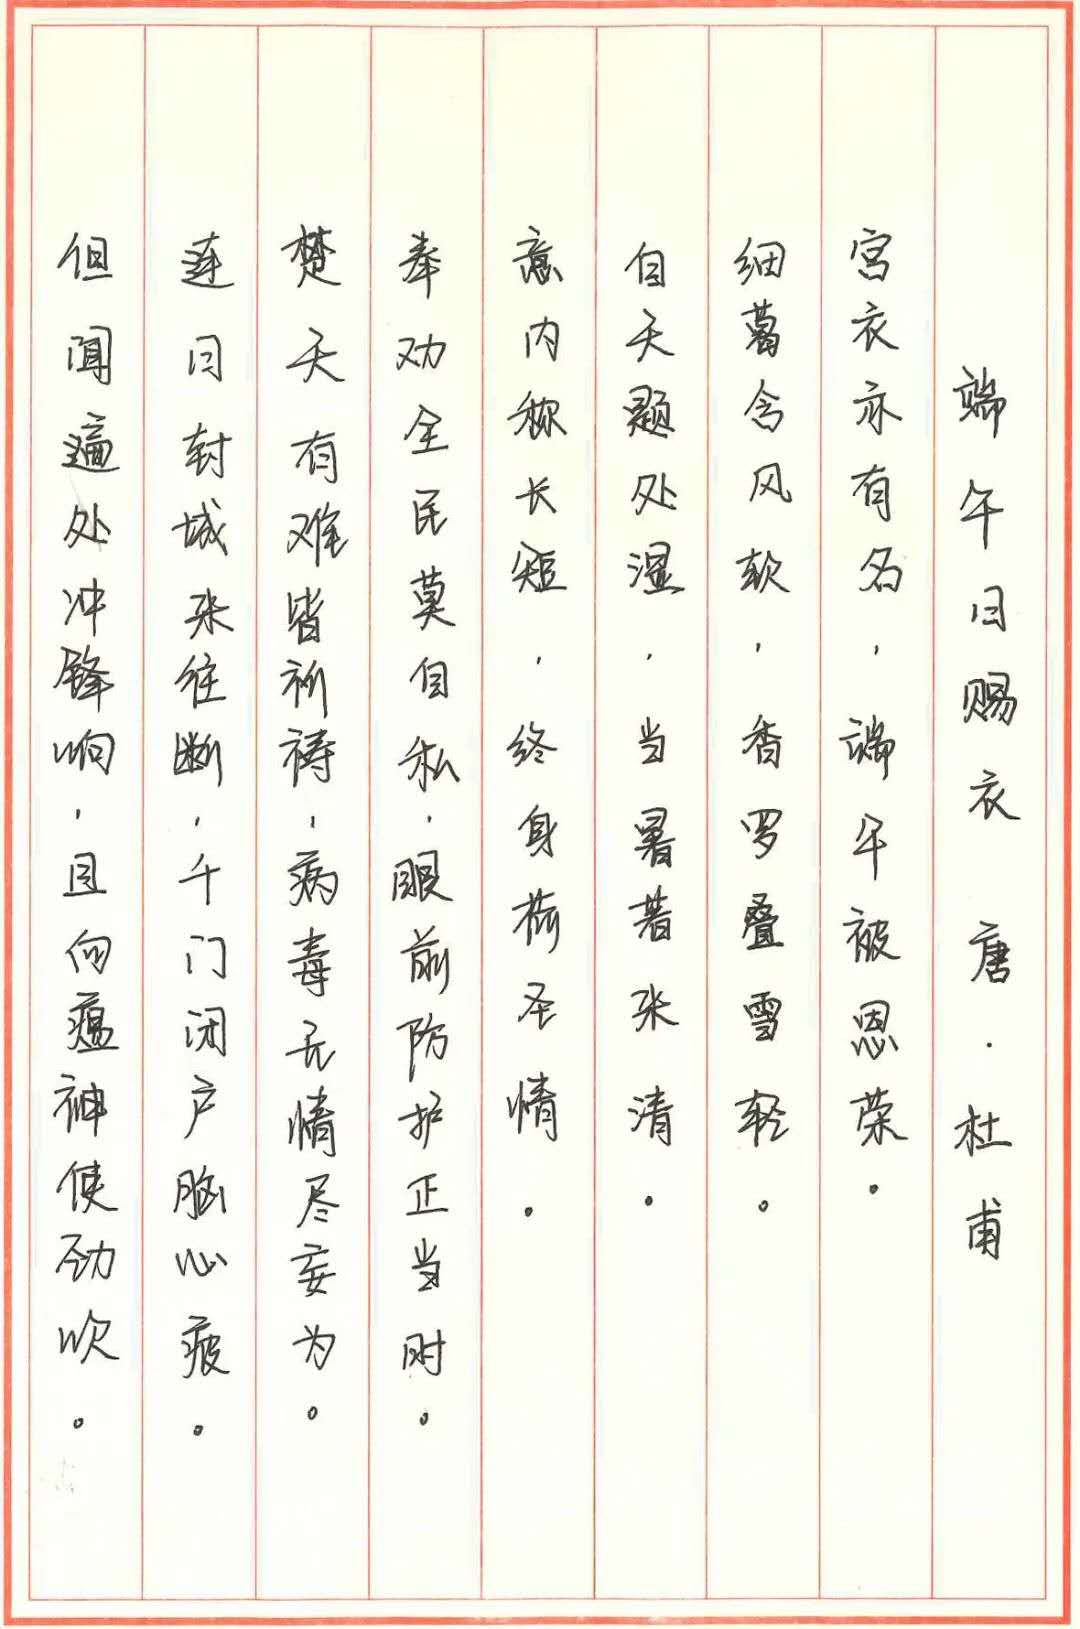 端午日赐衣 唐·杜甫
宫衣亦有名，端午被恩荣。
细葛含风软，香罗叠雪轻。
自天题处湿，当暑著来清。
意内称长短，终身荷圣情。
奉劝全民莫自私，眼前防护正当时。
楚天有难皆祈祷，病毒无情尽妄为。
连日封城来往断，千门闭户脑心疲。
但闻遍处冲锋响，且向瘟神使劲吹。